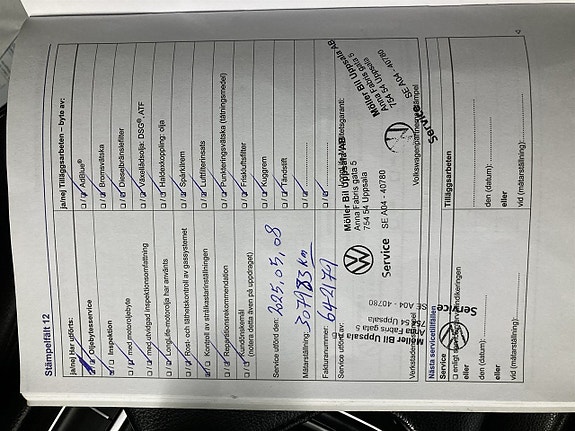 Stämpelfält 12
ja/nej Har utförts:
□ / □ Oljebytesservice
□ / □ Inspektion
□ / □ med motoroljebyte
□ / □ med utvidgad inspektionsomfattning
□ / □ LongLife-motorolja har använts
□ / □ Rost- och täthetskontroll av gassystemet
□ / □ Kontroll av strålkastarinställningen
□ / □ Reparationsrekommendation
□ / □ Kundönskemål
(notera detta även på uppdraget)
Service utförd den: 2025,05,08
Mätarställning: 307983 km
Fakturanummer: 642179
Service utförd av:
Verkstadens
ja/nej Tilläggsarbeten – byte av:
□ / □ AdBlue®
□ / □ Bromsvätska
□ / □ Dieselbränslefilter
□ / □ Växellådsolja: DSG®, ATF
□ / □ Haldexkoppling: olja
□ / □ Tändstift
□ / □ Luftfilterinsats
□ / □ Punkteringsvätska (tätningsmedel)
□ / □ Friskluftsfilter
□ / □ Kuggrem
Möller Bil Uppsala AB
Anna Fabris gata 5
754 54 Uppsala
Service SE A04 - 40780
Möller Bil Uppsala AB
Anna Fabris gata 5
754 54 Uppsala
SE A04 - 40780
Service
Volkswagenpartnerns stämpel
Möller Bil Uppsala
Anna Fabris gata 5
754 54 Uppsala
SE A04 - 40780
Service
Nästa servicetillfällen
Service
□ enligt
eller
den (datum):
eller
vid (mätarställning):
Tilläggsarbeten
den (datum):
eller
vid (mätarställning):